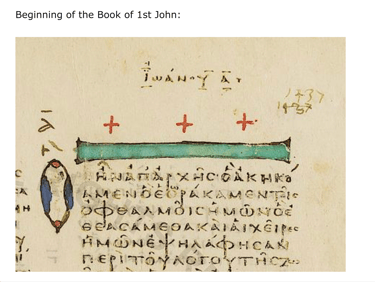 Beginning of the Book of 1st John:
ΙωάΝΟΥ Α.
ἮΝἈΠΆΡΧΗ͂CὉἈΚΗΚΟ
ΑΜΕΝΟΕΟΡΆΚΑΜΕΝΤΟΙC
ΟΦΘΑΛΜΟΙCΗΜΩΝΟΕ
ΘΕΑCΑΜΕΘΑΚΑΙΑΙΧΕΙΡΕC
ΗΜΩΝΕΨΗΛΆΦΗCΑΝ
ΠΕΡΙΤΟΥΛΌΓΟΥΤΗCΖΩ